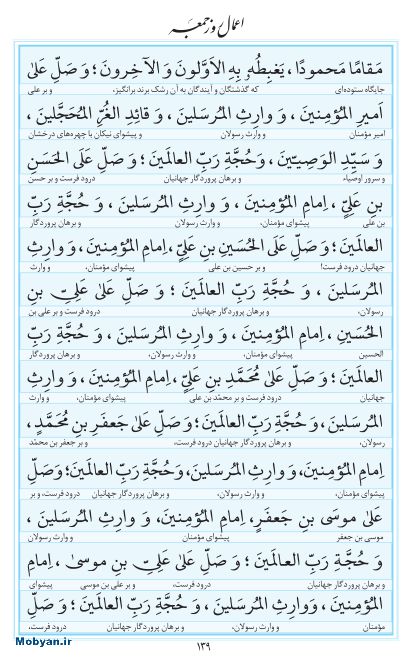 اعمال روز جمعه
مَقامًا مَحمودًا ، يَغبِطُهُ بِهِ الاَوَّلونَ وَ الآخِرونَ ؛ وَ صَلِّ عَلىٰ
جایگاه ستوده‌ای که گذشتگان و آیندگان به آن رشک برند برانگیز، و بر علی
اَميرِ المُؤمِنينَ ، وَ وارِثِ المُرسَلينَ ، وَ قائِدِ الغُرِّ المُحَجَّلينَ ،
امیر مؤمنان و وارث رسولان و پیشوای نیکان با چهره‌های درخشان
وَ سَيِّدِ الوَصِيّينَ ، وَ حُجَّةِ رَبِّ العالَمينَ ؛ وَ صَلِّ عَلَى الحَسَنِ
و سرور اوصیاء و برهان پروردگار جهانیان درود فرست و بر حسن
بنِ عَلِيٍّ ، اِمامِ المُؤمِنينَ ، وَ وارِثِ المُرسَلينَ ، وَ حُجَّةِ رَبِّ
بن علی پیشوای مؤمنان، و وارث رسولان و برهان پروردگار
العالَمينَ ؛ وَ صَلِّ عَلَى الحُسَينِ بنِ عَلِيٍّ ، اِمامِ المُؤمِنينَ ، وَ وارِثِ
جهانیان درود فرست؛ و بر حسین بن علی پیشوای مؤمنان، و وارث
المُرسَلينَ ، وَ حُجَّةِ رَبِّ العالَمينَ ؛ وَ صَلِّ عَلىٰ عَلِيِّ بنِ
رسولان، و برهان پروردگار جهانیان درود فرست و بر علی بن
الحُسَينِ ، اِمامِ المُؤمِنينَ ، وَ وارِثِ المُرسَلينَ ، وَ حُجَّةِ رَبِّ
الحسین پیشوای مؤمنان، و وارث رسولان، و برهان پروردگار
العالَمينَ ؛ وَ صَلِّ عَلىٰ مُحَمَّدِ بنِ عَلِيٍّ ، اِمامِ المُؤمِنينَ ، وَ وارِثِ
جهانیان درود فرست و بر محمّد بن علی پیشوای مؤمنان، و وارث
المُرسَلينَ ، وَ حُجَّةِ رَبِّ العالَمينَ ؛ وَ صَلِّ عَلىٰ جَعفَرِ بنِ مُحَمَّدٍ ،
رسولان، و برهان پروردگار جهانیان درود فرست، و بر جعفر بن محمّد
اِمامِ المُؤمِنينَ ، وَ وارِثِ المُرسَلينَ ، وَ حُجَّةِ رَبِّ العالَمينَ ؛ وَ صَلِّ
پیشوای مؤمنان، و وارث رسولان، و برهان پروردگار جهانیان درود فرست، و بر
عَلىٰ موسَى بنِ جَعفَرٍ ، اِمامِ المُؤمِنينَ ، وَ وارِثِ المُرسَلينَ ،
موسی بن جعفر پیشوای مؤمنان و وارث رسولان
وَ حُجَّةِ رَبِّ العالَمينَ ؛ وَ صَلِّ عَلىٰ عَلِيِّ بنِ موسىٰ ، اِمامِ
و برهان پروردگار جهانیان درود فرست، و بر علی بن موسی پیشوای
المُؤمِنينَ ، وَ وارِثِ المُرسَلينَ ، وَ حُجَّةِ رَبِّ العالَمينَ ؛ وَ صَلِّ
مؤمنان و وارث رسولان، و برهان پروردگار جهانیان درود فرست،
۱۳۹
Mobyan.ir